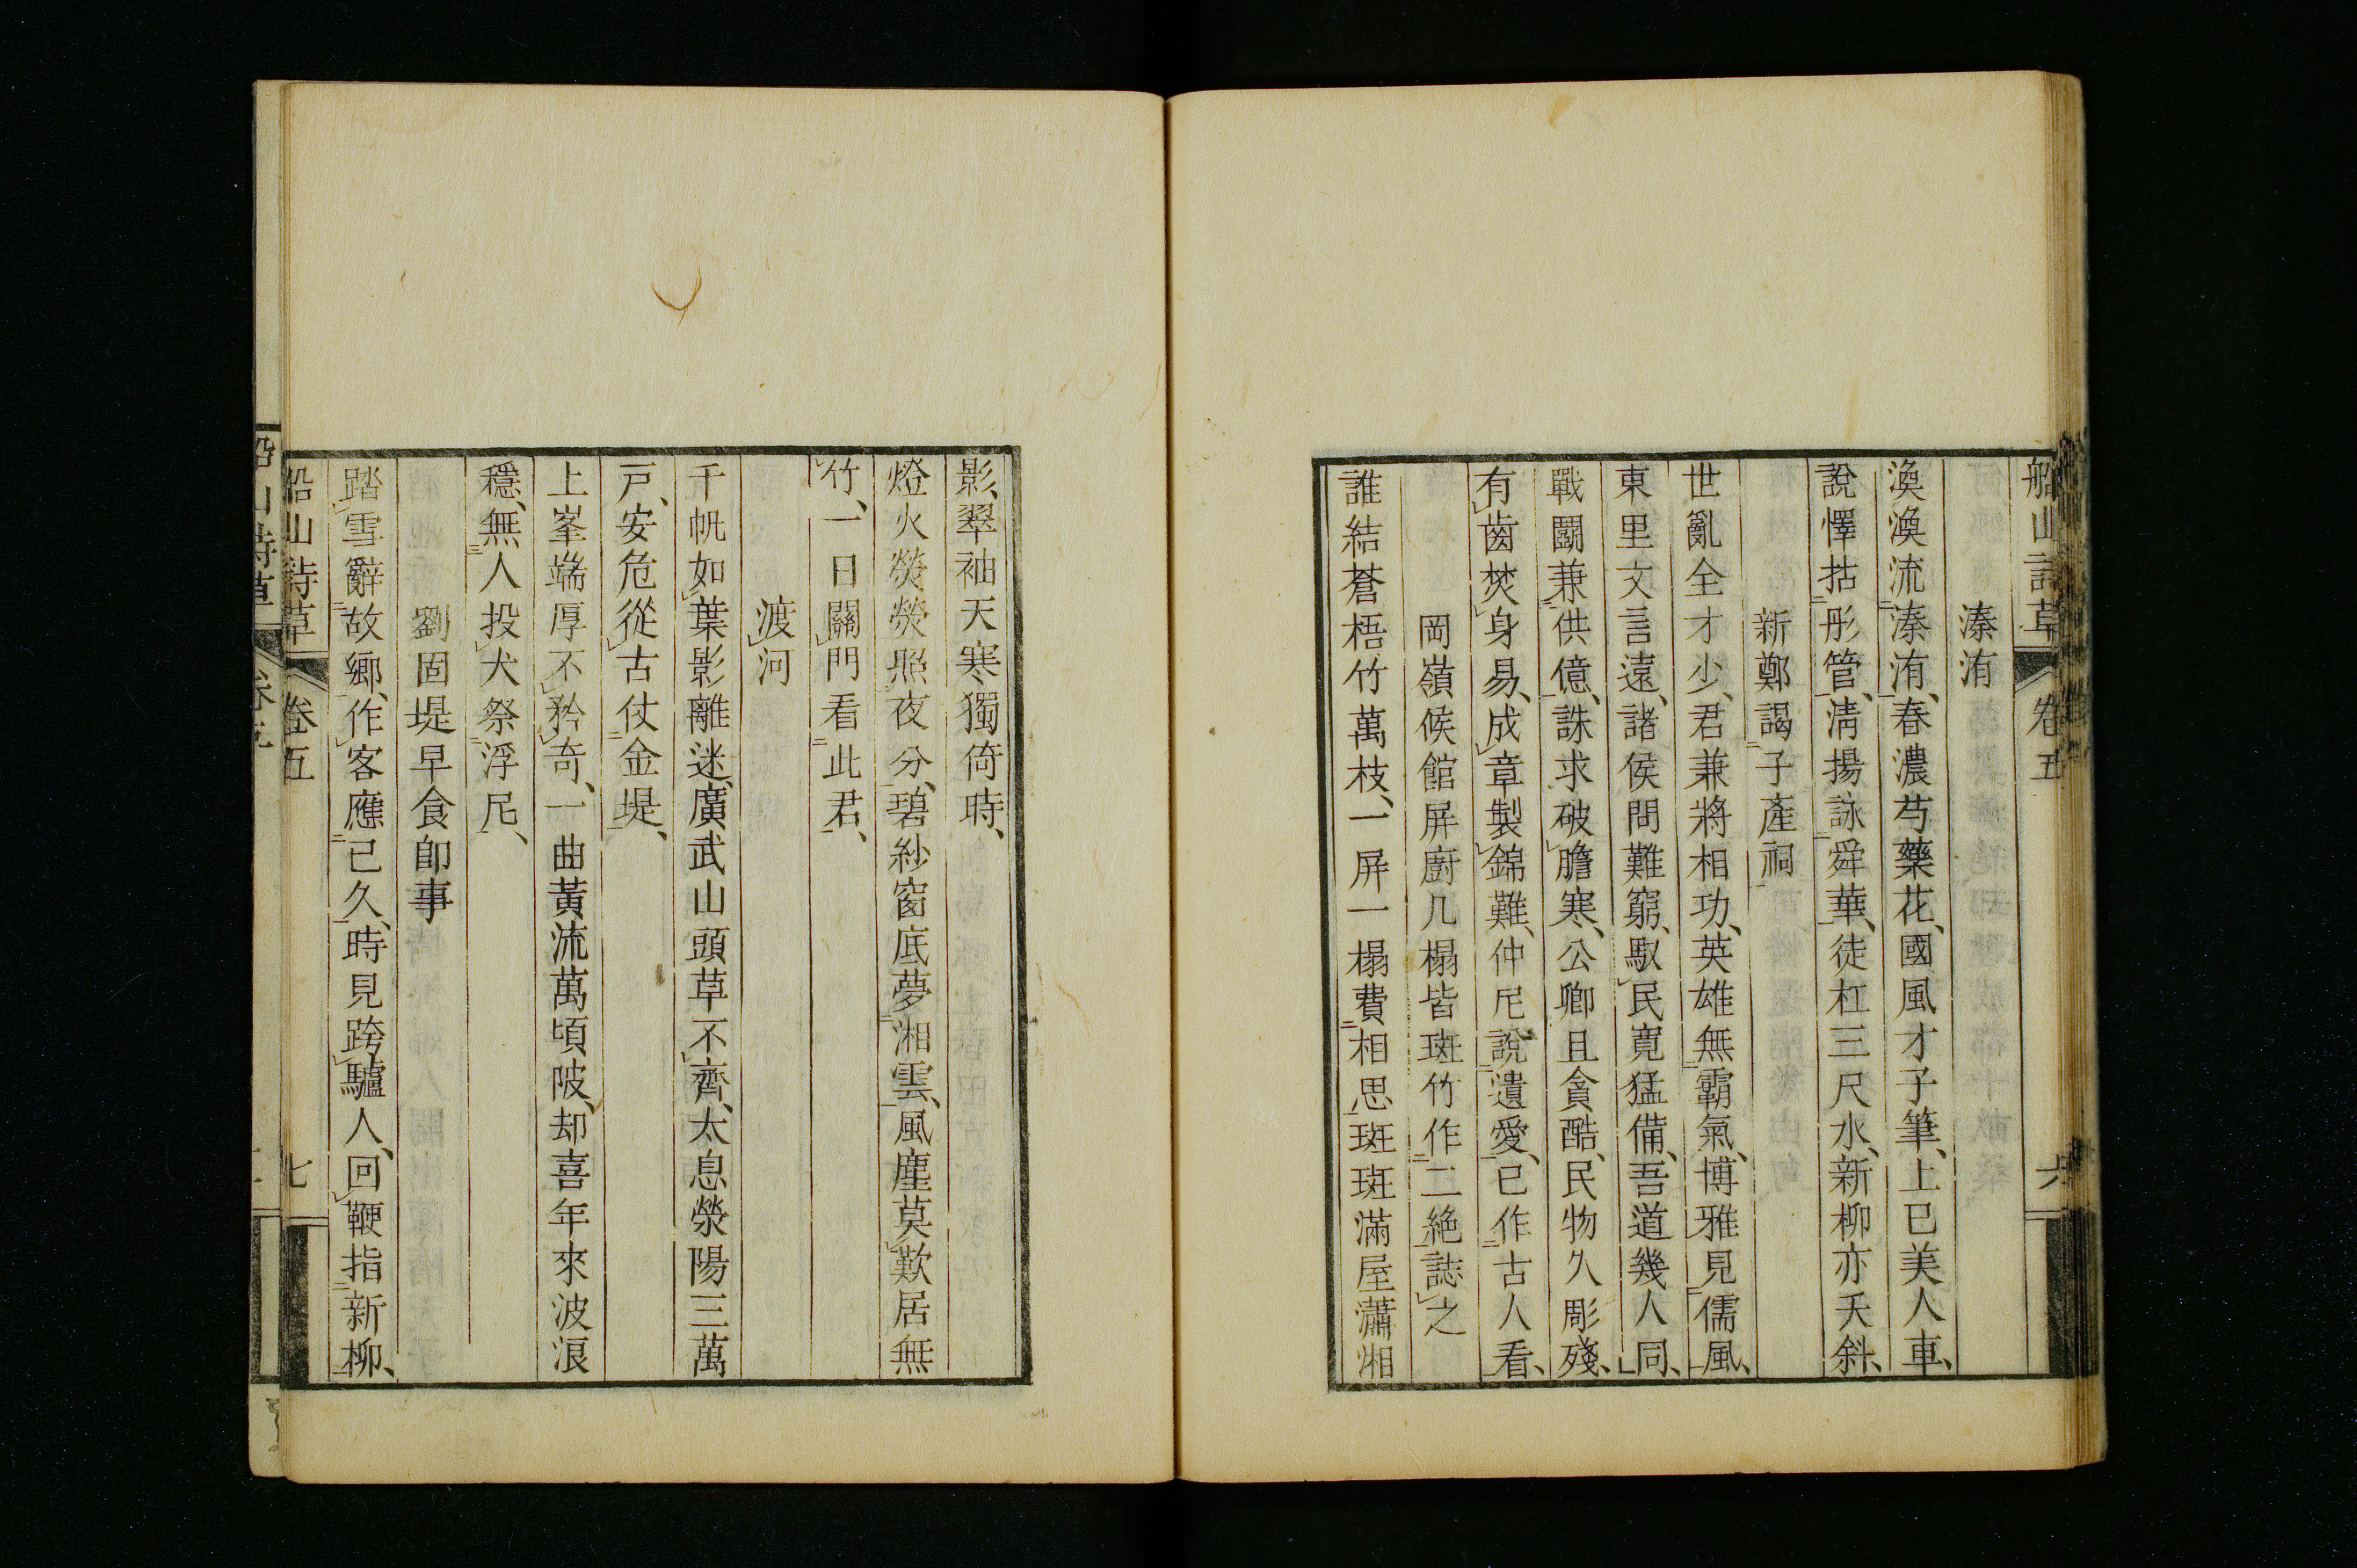 船山詩草 卷五 六
溱洧
渙渙流溱洧、春濃芍藥花、國風才子筆、上巳美人車、
說懌拈彤管、淸揚詠舜華、徒杠三尺水、新柳亦夭斜、
新鄭謁子產祠
世亂全才少、君兼將相功、英雄無霸氣、博雅見儒風、
東里文言遠、諸侯問難窮、馭民寬猛備、吾道幾人同、
戰鬭兼供億、誅求破膽寒、公卿且貪酷、民物久彫殘、
有齒焚身易、成章製錦難、仲尼說遺愛、已作古人看、
岡嶺候館屏廚几榻皆斑竹作二絕誌之
誰結蒼梧竹萬枝、一屏一榻費相思斑斑滿屋瀟湘
影、翠袖天寒獨倚時、
燈火熒熒照夜分、碧紗窗底夢湘雲、風塵莫歎居無
竹、一日關門看此君、
渡河
千帆如葉影離迷、廣武山頭草不齊、太息滎陽三萬
戶、安危從古仗金堤、
上峯端厚不矜奇、一曲黃流萬頃陂、却喜年來波浪
穩、無人投犬祭浮尼、
劉固堤早食卽事
踏雪辭故鄉、作客應已久、時見跨驢人、回鞭指新柳、
船山詩草 卷五 七
船山詩草 卷五